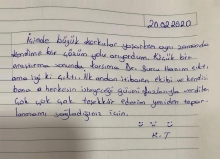 20.02.2020
İçimde büyük korkular yaşarken aynı zamanda
kendime bir çözüm yolu arıyordum. Küçük bir
araştırma sonunda karşıma Dr. Burcu Hanım çıktı,
ama iyi ki çıktı. İlk andan itibaren etkisi ve kendisi
bana o herkesin isteyeceği güveni fazlasıyla verdiler.
Çok çok çok teşekkür ederim yeniden topar-
lanmamı sağladığınız için.
R.T